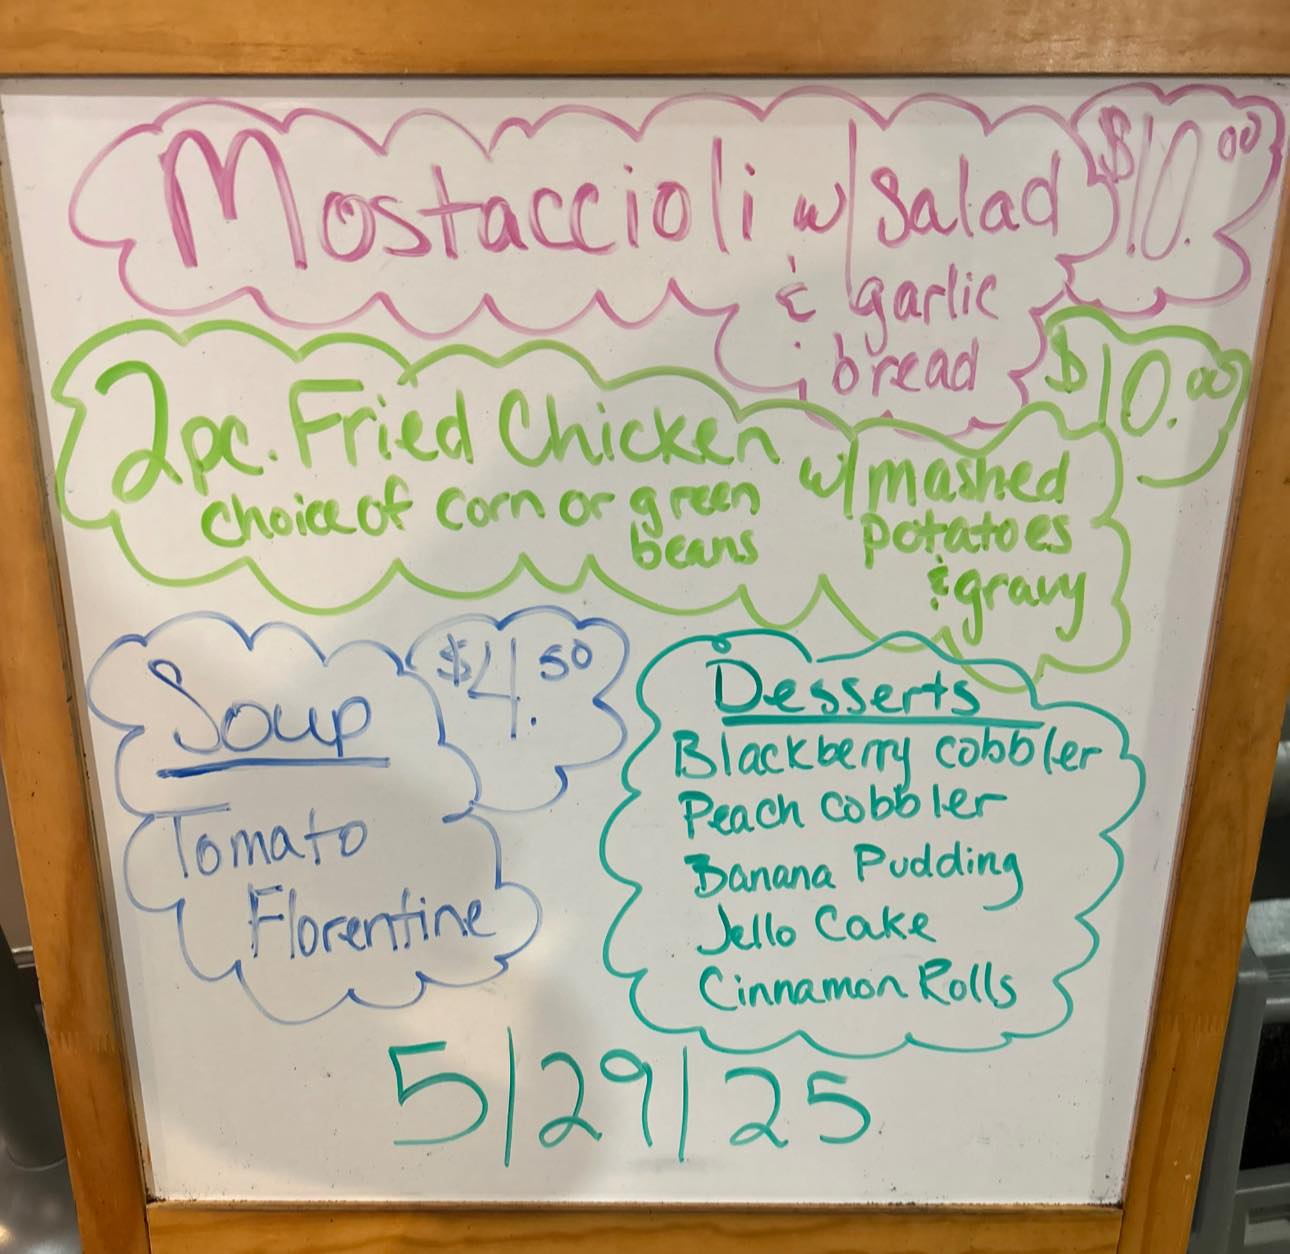 Mostaccioli w/ Salad $10.00
& garlic
bread
2pc. Fried Chicken w/ mashed $10.00
choice of corn or green potatoes
beans & gravy
Soup $4.50
Tomato
Florentine
Desserts
Blackberry cobbler
Peach cobbler
Banana Pudding
Jello Cake
Cinnamon Rolls
5/29/25